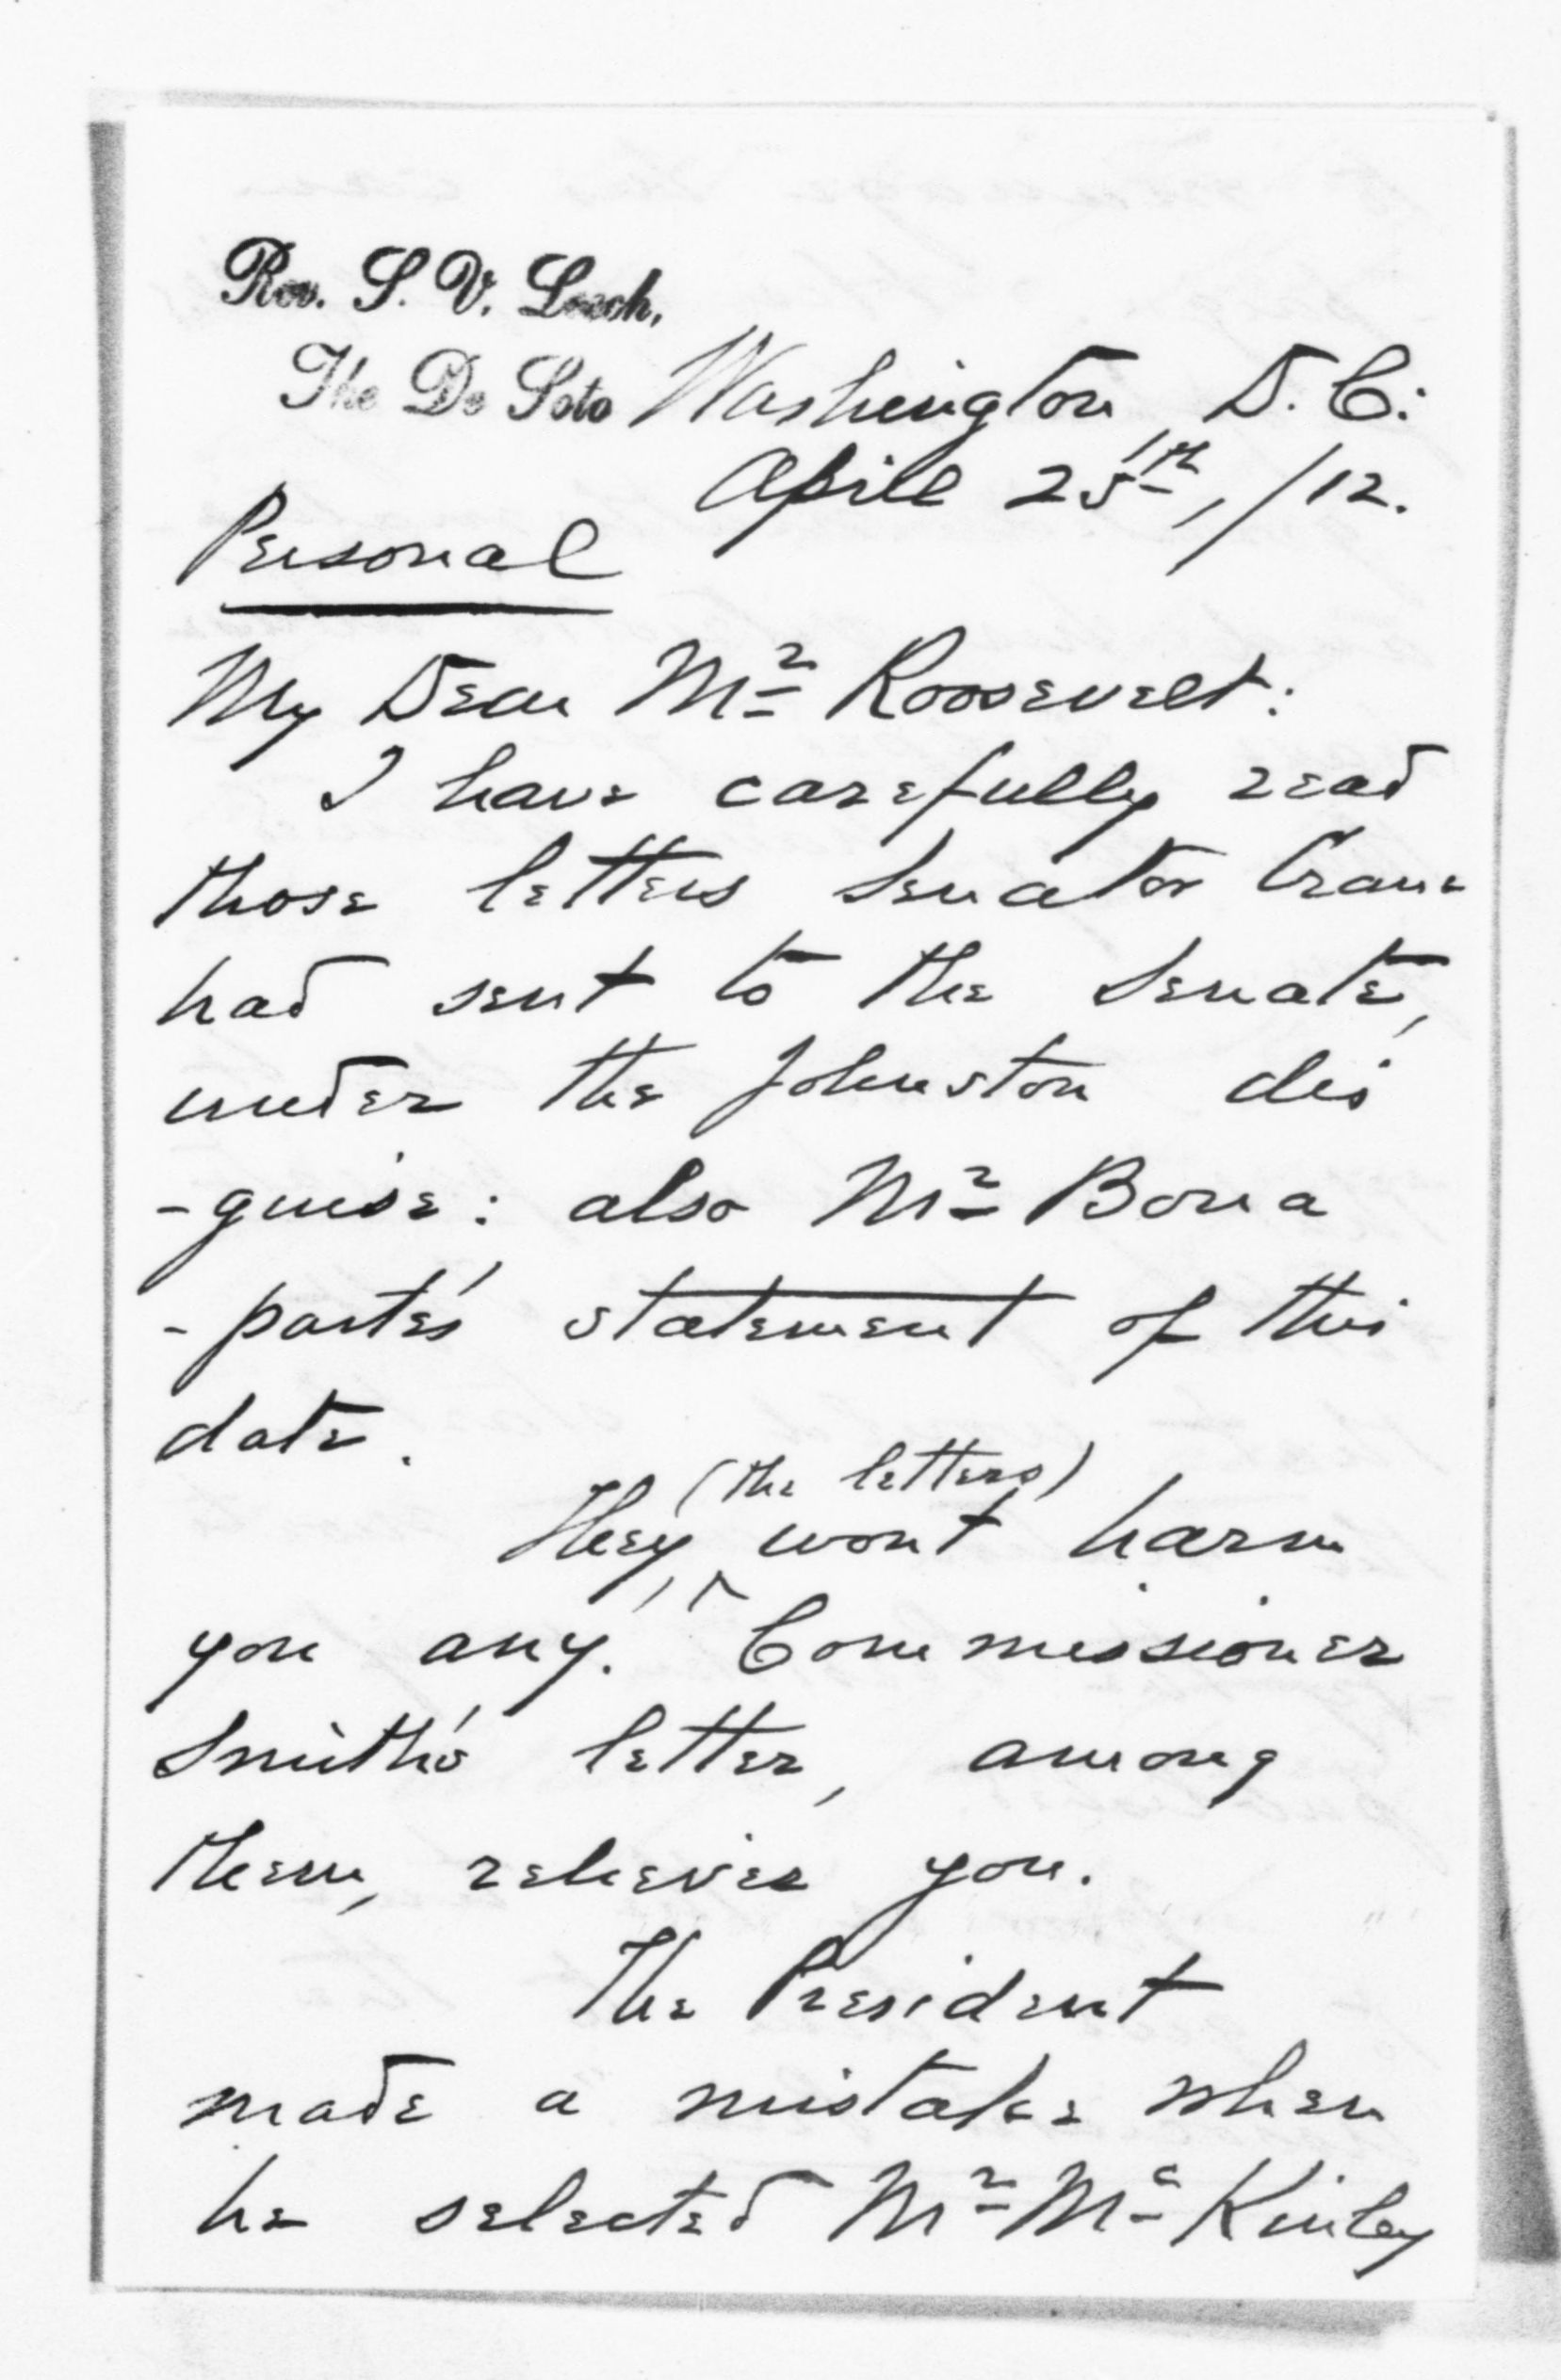 Rev. S. V. Leech,
The De Soto Washington, D. C:
April 25th, /12.
Personal
My Dear Mr Roosevelt:
I have carefully read
those letters Senator Crane
had sent to the Senate,
under the Johnston dis
-guise: also Mr Bona
-parte's statement of this
date.
(the letters)
They, ^ wont harm
you any. Commissioner
Smith's letter, among
them, relieves you.
The President
made a mistake when
he selected Mr McKinley